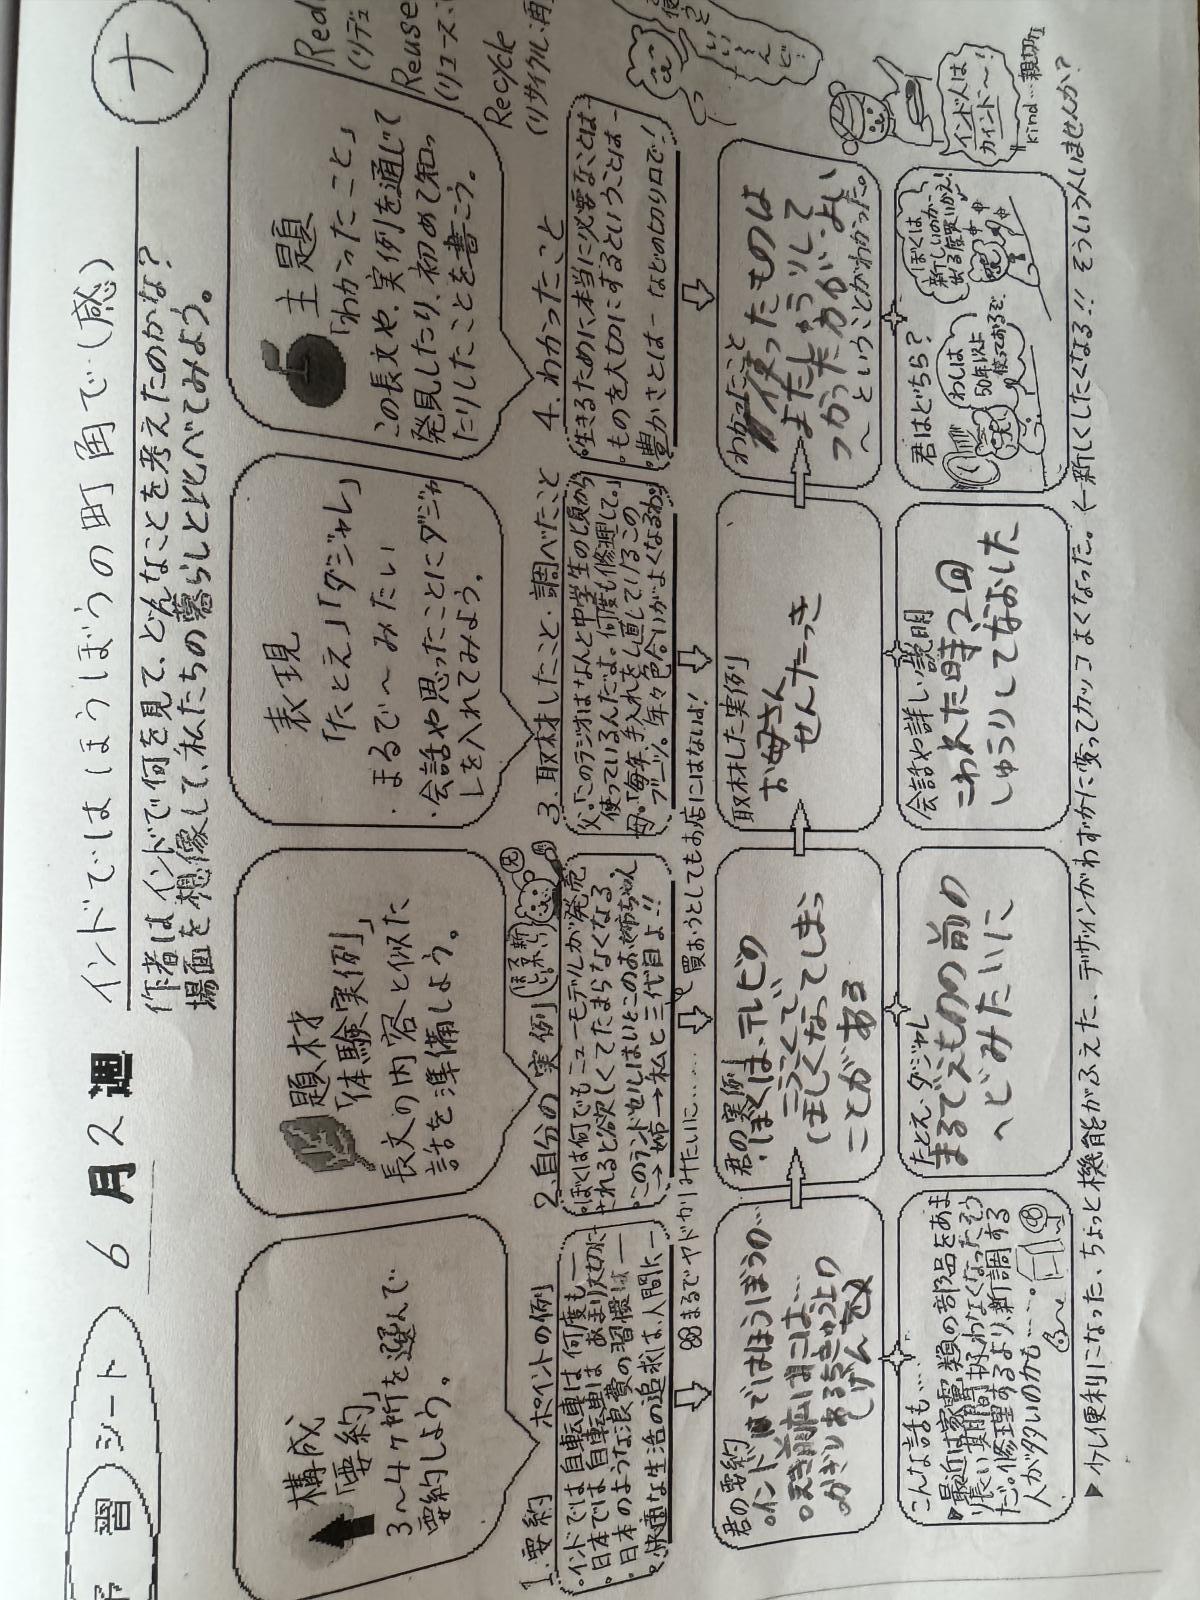 予習シート
6月2週
インドではほうぼうの町角で(感)
ナ
作者はインドで何を見て、どんなことを考えたのかな?
場面を想像して、私たちの暮らしと比べてみよう。
構成
「要約」
3〜4ヶ所を選んで
要約しよう。
題材
「体験実例」
長文の内容と似た
話を準備しよう。
表現
「たとえ」「ダジャレ」
・まるで〜みたい
・会話や思ったことにダジャ
レを入れてみよう。
主題
「わかったこと」
この長文や、実例を通じて
発見したり、初めて知っ
たりしたことを書こう。
Reuse
Recycle
1.要約 ポイントの例
・インドでは自転車は何度も―
・日本では自転車はあまり大切に―
・日本のような浪費の習慣は―
・快適な生活の追求は、人間に―
2.自分の実例
・ぼくは何でもニューモデルが発売
されると欲しくてたまらなくなる。
・このランドセルはいとこのお姉ちゃん
→姉→私と三代目よ!!
3.取材したこと・調べたこと
父。「このラジオはなんと中学生の頃から
使っているんだよ。何度も修理して。」
母。「毎年、手入れをし直しているこの
ブーツ。年々色合いがよくなるわ。」
4.わかったこと
・生きるために本当に必要なことは―
・ものを大切にするということは―
・豊かさとは― などの切り口で!
まるでヤドカリみたいに……
買おうとしてもお店にはないよ!
君の要約
・インドではほうぼうの…
かぎりあるちきゅう上の
しげんを
君の実例
・ぼくは、テレビの
ほしくなってしまっ
ことがある
取材した実例
お母さん
せんたっき
わかったこと
使ったものは
またしゅうりして
つかった方がいい
〜ということがわかった。
こんな話も…
▶最近は家電類の部品をあま
り長い期間扱わなくなったそう
だ。修理するより、新調する
人が多いのかも…。
たとえ・ダジャレ
まるでえものの前の
へびみたいに
会話や詳しい説明
こわれた時2回
しゅうりしてなおした
君はどちら?
わしは
50年以上
使っておるぞ
ぼくは
新しいのが
出る度買いかえ!
インド人は
カインド〜!
kind…親切な
▶少し便利になった、ちょっと機能がふえた、デザインがわずかに変ってカッコよくなった。(→新しくしたくなる!!そういう人いませんか?